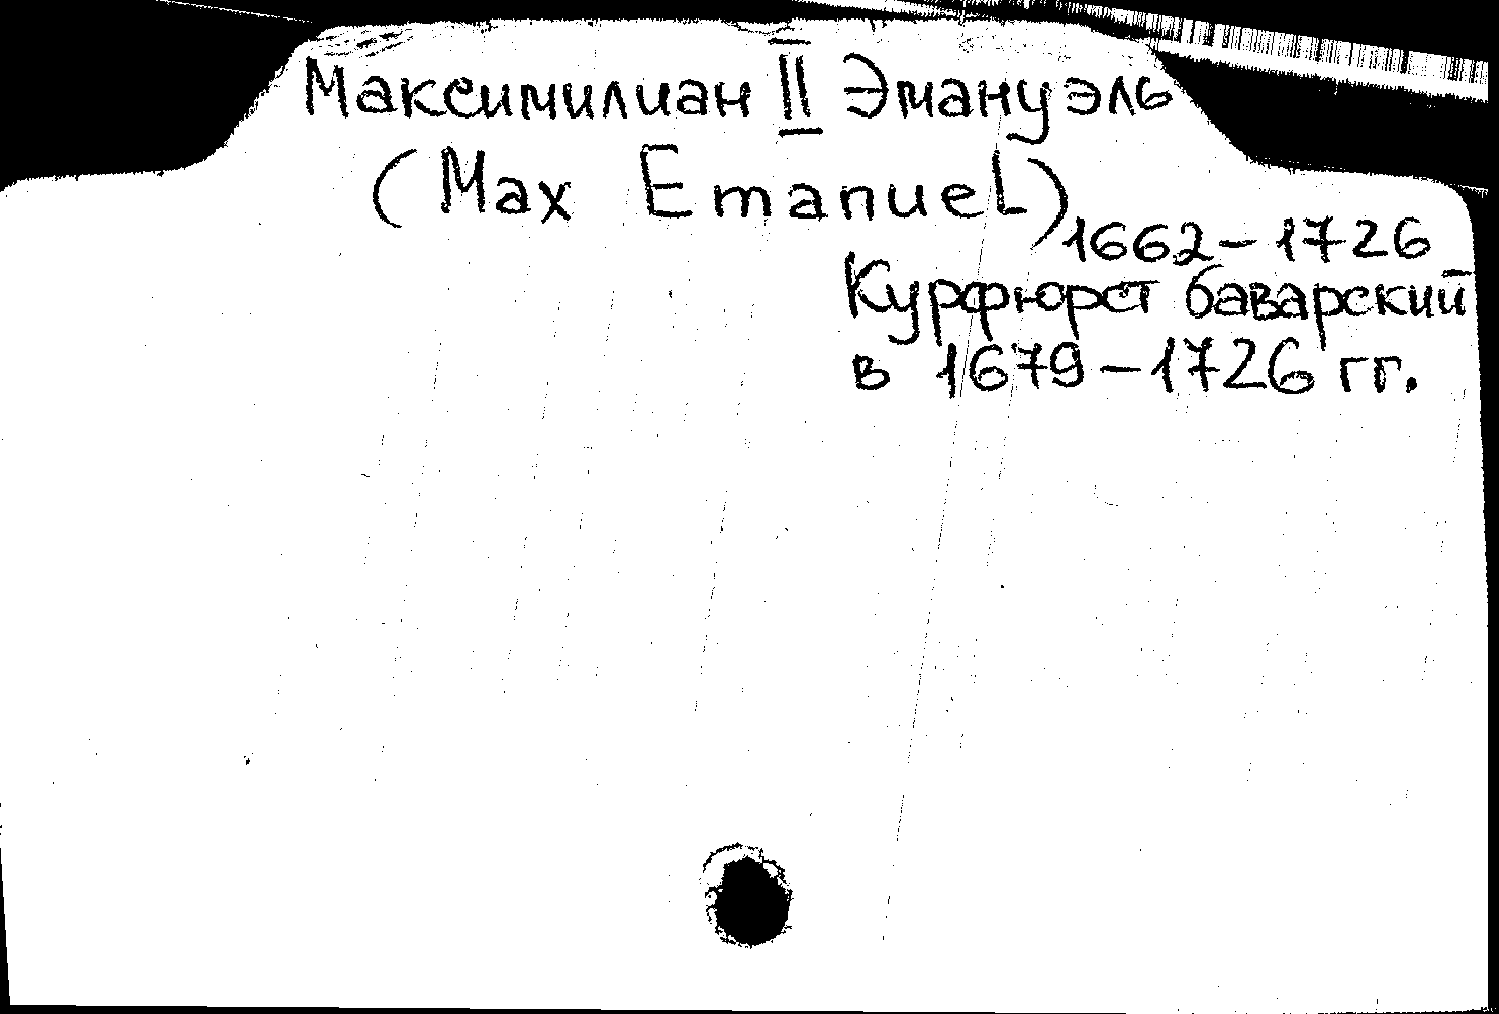 Максимилиан II Эмануэль
(Max Emanuel)
1662-1726
Курфюрст баварский
в 1679-1726 гг.